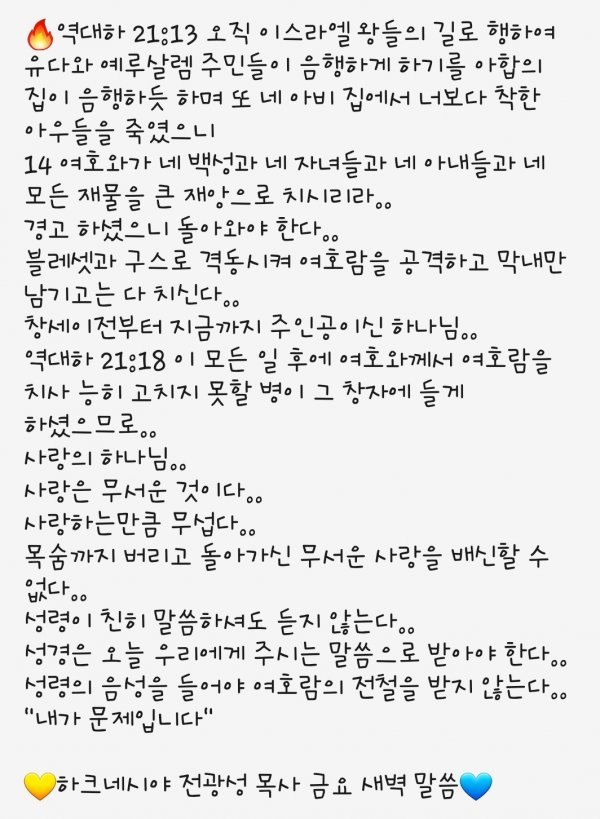 🔥역대하 21:13 오직 이스라엘 왕들의 길로 행하여
유다와 예루살렘 주민들이 음행하게 하기를 아합의
집이 음행하듯 하며 또 네 아비 집에서 너보다 착한
아우들을 죽였으니
14 여호와가 네 백성과 네 자녀들과 네 아내들과 네
모든 재물을 큰 재앙으로 치시리라..
경고 하셨으니 돌아와야 한다..
블레셋과 구스로 격동시켜 여호람을 공격하고 막내만
남기고는 다 치신다..
창세이전부터 지금까지 주인공이신 하나님..
역대하 21:18 이 모든 일 후에 여호와께서 여호람을
치사 능히 고치지 못할 병이 그 창자에 들게
하셨으므로..
사랑의 하나님..
사랑은 무서운 것이다..
사랑하는만큼 무섭다..
목숨까지 버리고 돌아가신 무서운 사랑을 배신할 수
없다..
성령이 친히 말씀하셔도 듣지 않는다..
성경은 오늘 우리에게 주시는 말씀으로 받아야 한다..
성령의 음성을 들어야 여호람의 전철을 받지 않는다..
"내가 문제입니다"
💛하크네시야 전광성 목사 금요 새벽 말씀💙